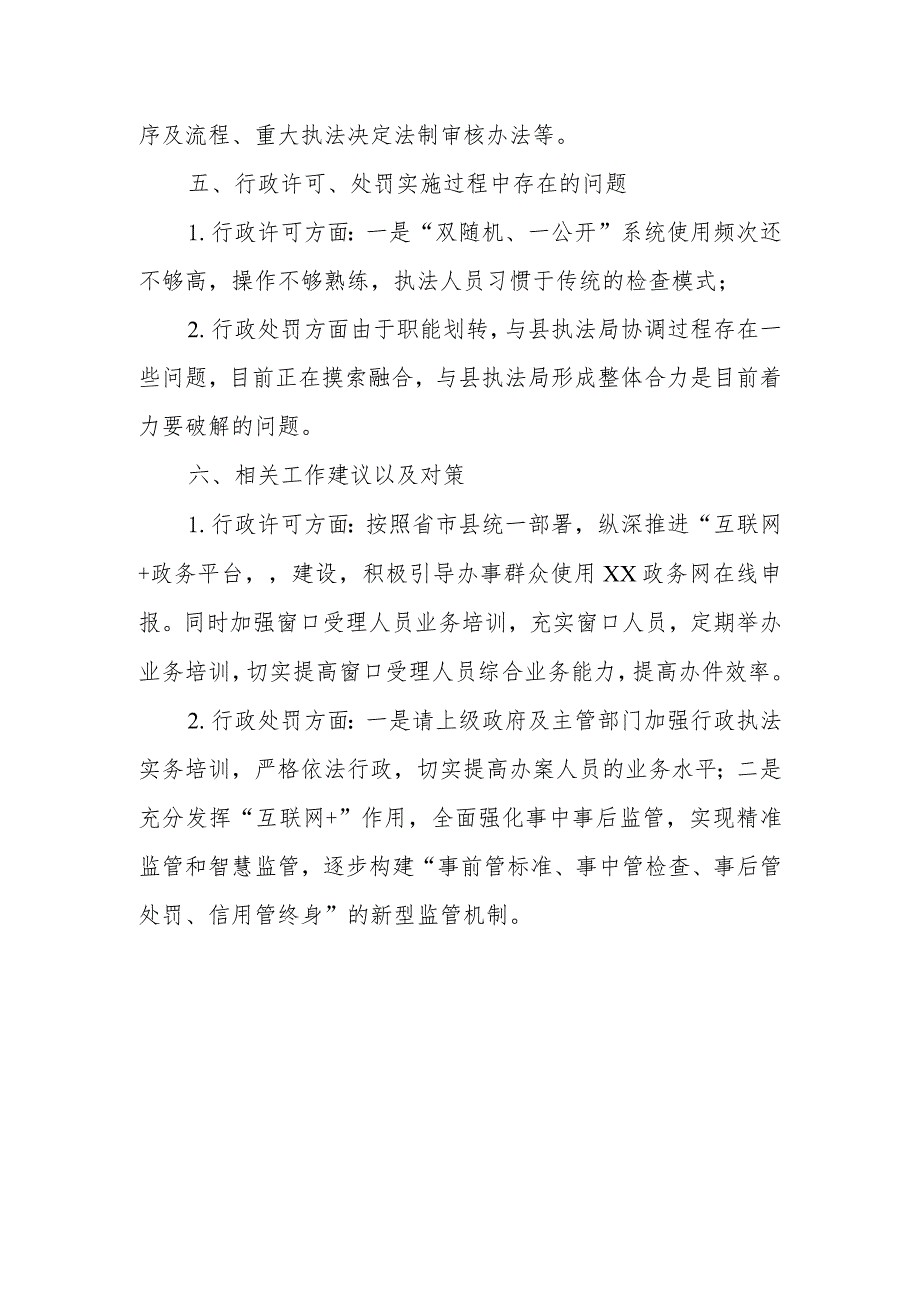 序及流程、重大执法决定法制审核办法等。
五、行政许可、处罚实施过程中存在的问题
1. 行政许可方面：一是“双随机、一公开”系统使用频次还
不够高，操作不够熟练，执法人员习惯于传统的检查模式；
2. 行政处罚方面由于职能划转，与县执法局协调过程存在一
些问题，目前正在摸索融合，与县执法局形成整体合力是目前着
力要破解的问题。
六、相关工作建议以及对策
1. 行政许可方面：按照省市县统一部署，纵深推进“互联网
+政务平台，，建设，积极引导办事群众使用 XX 政务网在线申
报。同时加强窗口受理人员业务培训，充实窗口人员，定期举办
业务培训，切实提高窗口受理人员综合业务能力，提高办件效率。
2. 行政处罚方面：一是请上级政府及主管部门加强行政执法
实务培训，严格依法行政，切实提高办案人员的业务水平；二是
充分发挥“互联网+”作用，全面强化事中事后监管，实现精准
监管和智慧监管，逐步构建“事前管标准、事中管检查、事后管
处罚、信用管终身”的新型监管机制。